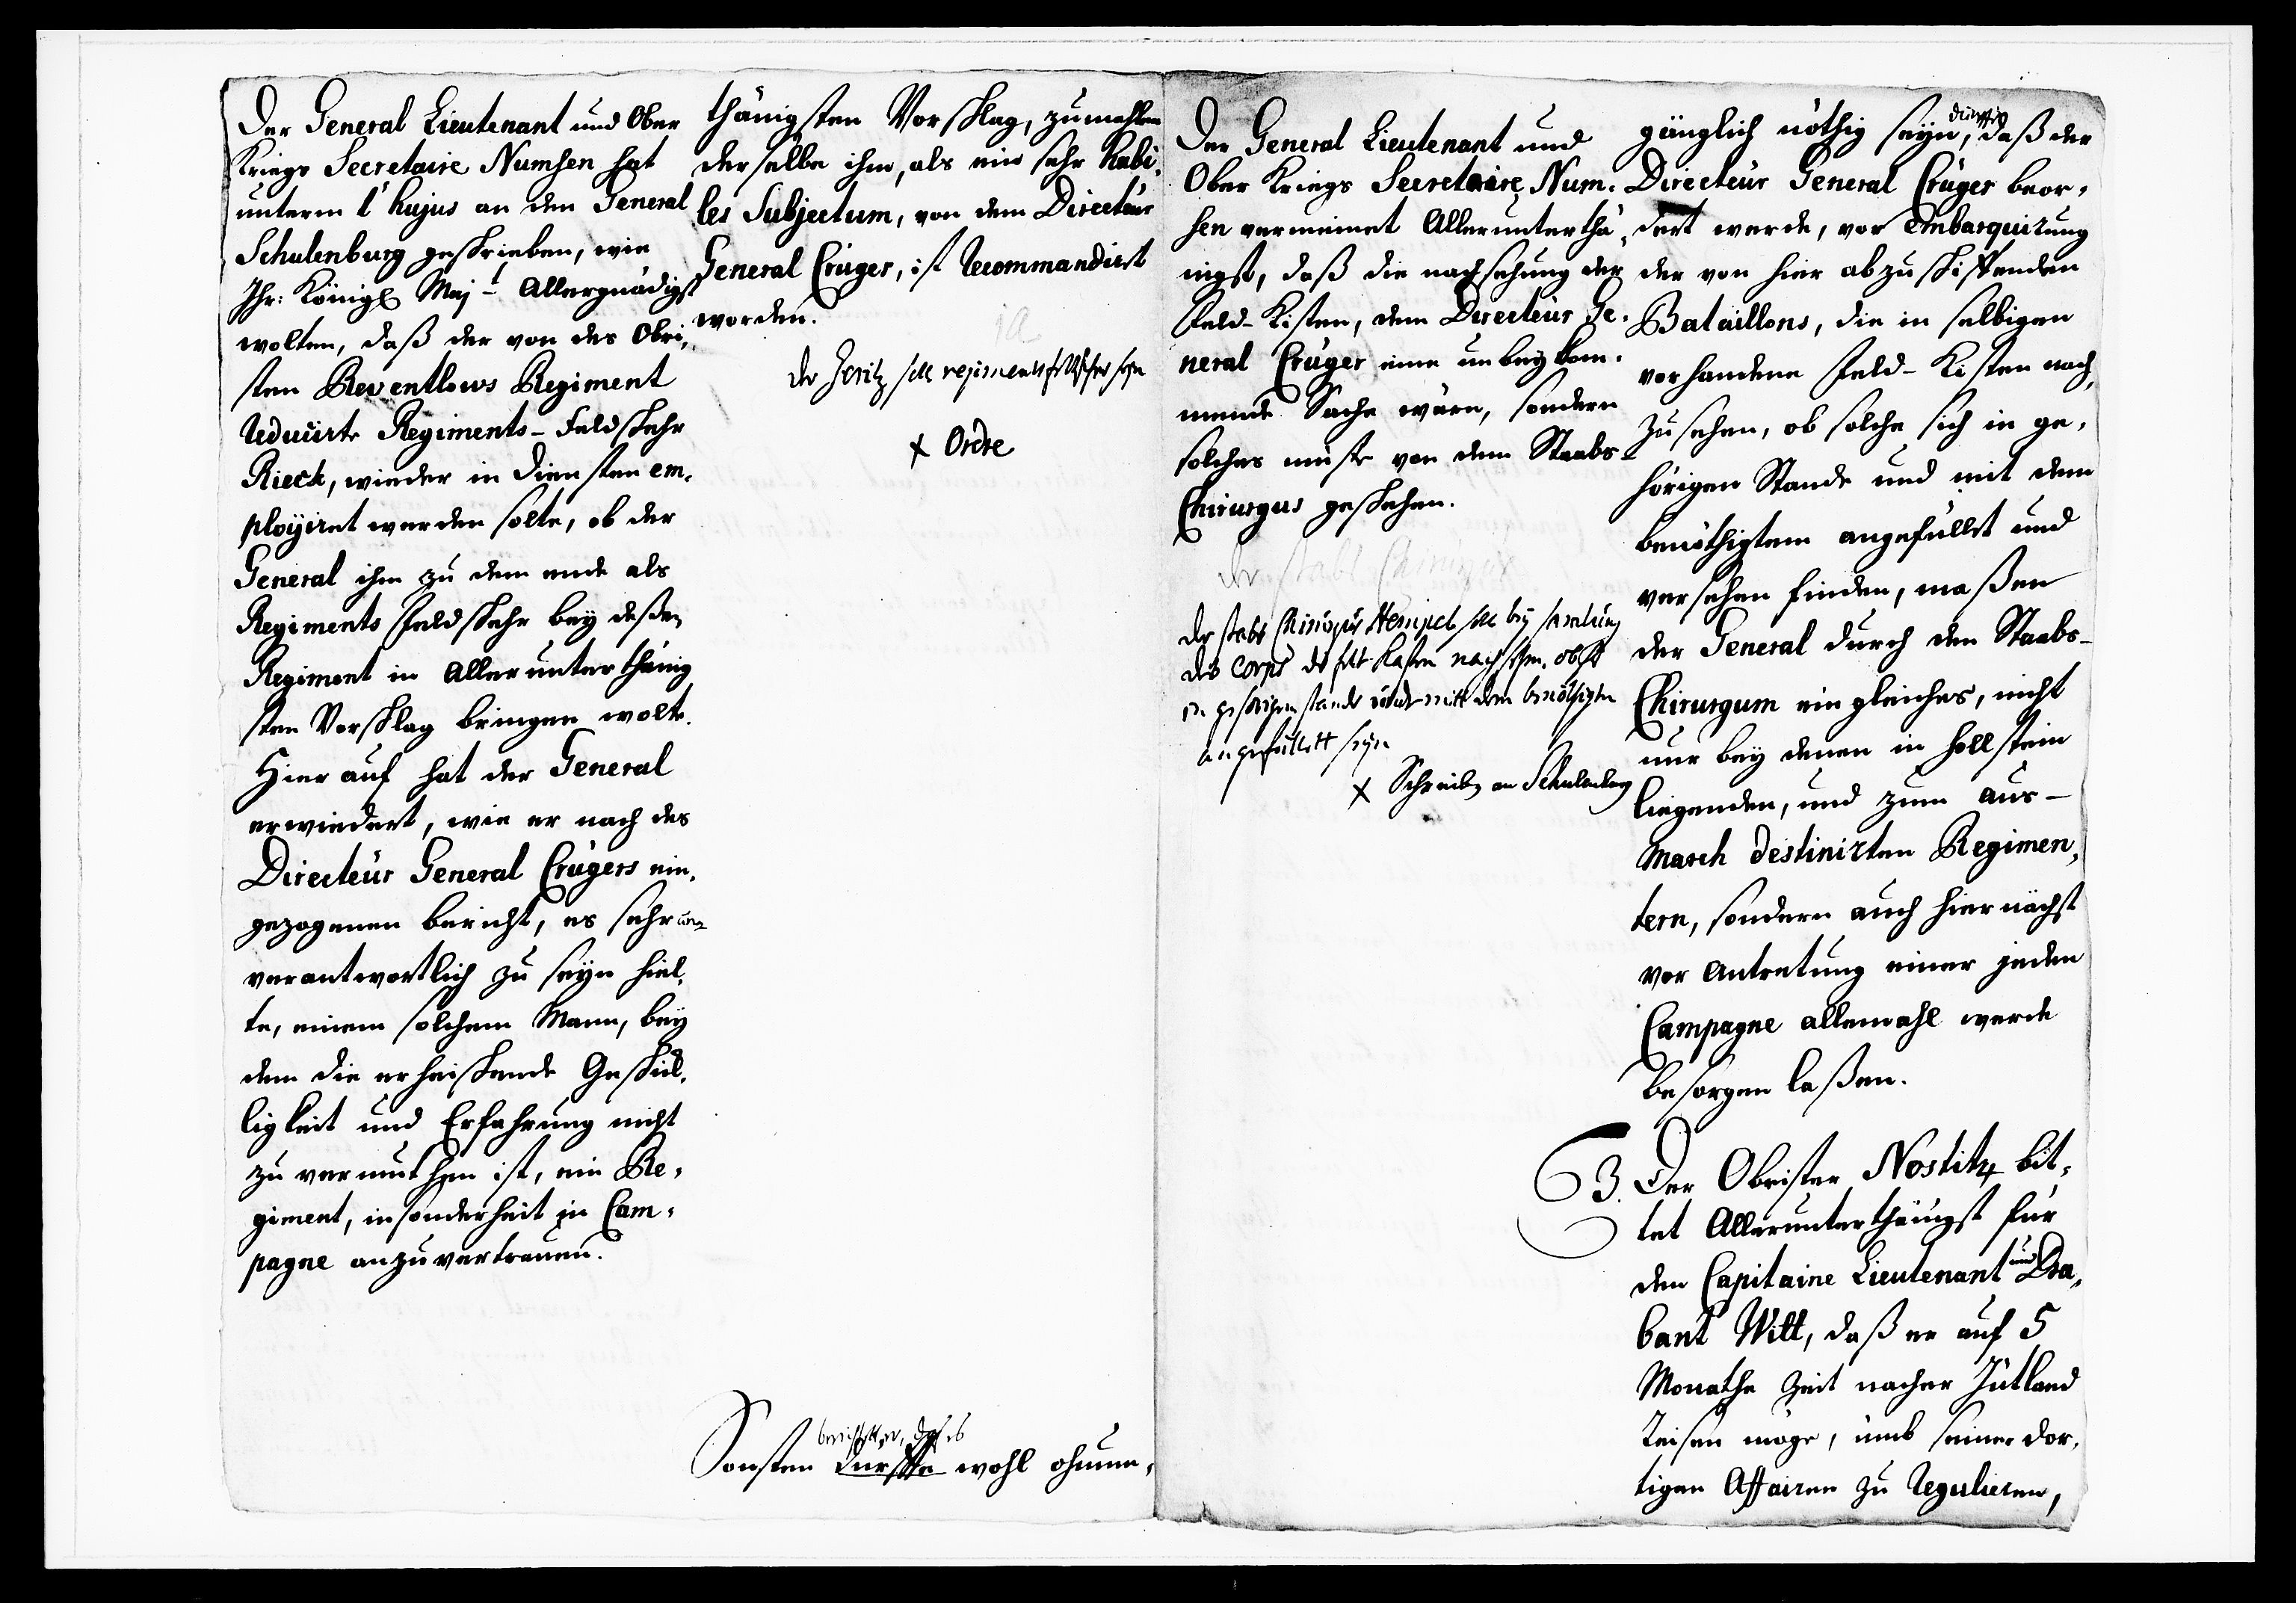 Der General Lieutenant und Ober
Kriegs Secretaire Numsen hat
unterm 1t hujus an den General
Schulenburg geschrieben, wie
Ihr: Königl Majt Allergnädigst
wolten, daß der von des Obri-
sten Reventlows Regiment
reducirte Regiments-Feldscher
Rieck, wieder in Diensten em-
ployiret werden solte, ob der
General ihn zu dem ende als
Regiments Feldscher bey deßen
Regiment in Allerunterthänig
sten Vorschlag bringen wolte.
Hierauf hat der General
erwiedert, wie er nach des
Directeur General Crügers ein-
gezogenen bericht, es sehr un-
verantwortlich zu seyn hiel-
te, einem solchem Mann, bey
dem die erheischende Geschick-
ligkeit und Erfahrung nicht
zu vermuthen ist, ein Re-
giment, insonderheit in Cam-
pagne anzuvertrauen.
thänigsten Vorschlag, zumahlen
derselbe ihm, als ein sehr habi-
les Subjectum, von dem Directeur
General Crüger, ist recommandirt
worden.
der soll regimentsfeltscher sein
x Ordre
berichtet er, daß es
Sonsten dürffte wohl ohnum-
Der General Lieutenant und
Ober Kriegs Secretaire Num-
sen vermeinet Allerunterthä-
nigst, daß die nachsehung der
Feld-Kisten, dem Directeur Ge-
neral Crüger eine unbeykom-
mende Sache wäre, sondern
solches müste von dem Staabs-
Chirurgus geschehen.
der stabs Chirurgus Hempel soll bey samlung
des Corps die felt Kasten nachsehen, ob sie
in gehörigen stande und mitt dem benöthigten
angefüllett seyn
x Schreiben an Schulenburg
gänglich nöthig seyn, daß der
Directeur General Crüger beor-
dert werde, vor Embarquirung
der von hier abzuschiffenden
Bataillons, die in selbigen
vorhandene Feld-Kisten nach-
zusehen, ob solche sich in ge-
hörigen Stande und mit dem
benöthigtem angefüllet und
versehen finden, maßen
der General durch den Staabs-
Chirurgum ein gleiches, nicht
nur bey denen in Hollstein
liegenden, und zum Aus-
march destinirten Regimen-
tern, sondern auch hiernächst
vor Antretung einer jeden
Campagne allemahl werde
besorgen laßen.
3. Der Obrister Nostitz bit-
tet Allerunterthänigst für
den Capitaine Lieutenant und Dra-
bant Witt, daß er auf 5
Monathe Zeit nacher Jütland
reisen möge, umb seine dor-
tigen Affairen zu regulieren,